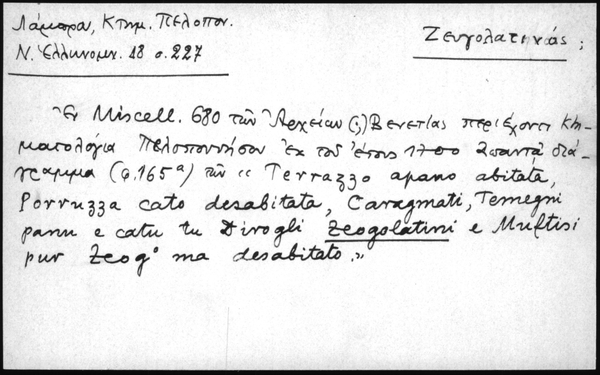 Λάμπρου, Κτημ. Πελοπον.
Ν. Ἑλληνομν. 18 σ. 227
Ζευγολατινάς ;
Ἐν Miscell. 680 τῶν Ἀρχείων (;) Βενετίας περιέχονται κτη-
ματολόγια Πελοποννήσου ἐκ τοῦ ἔτους 1700 διά-
γραμμα (φ. 165α) τῶν « Terrazzo apano abitata,
Porruzza cato desabitata, Caragmati, Temegni
panu e catu tu Dirogli Zeogolatini e Muftisi
pur Zeog° ma desabitato. »